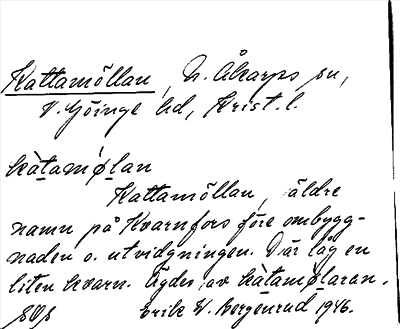 Kattamöllan, N. Åkarps sn,
V. Göinge hd, Krist. l.
kàtamø̀lan
Kattamöllan, äldre
namn på Kvarnfors före ombygg-
naden o. utvidgningen. Där låg en
liten kvarn. Ägdes av kàtamølaran.
Erik W. Borgenrud 1946.